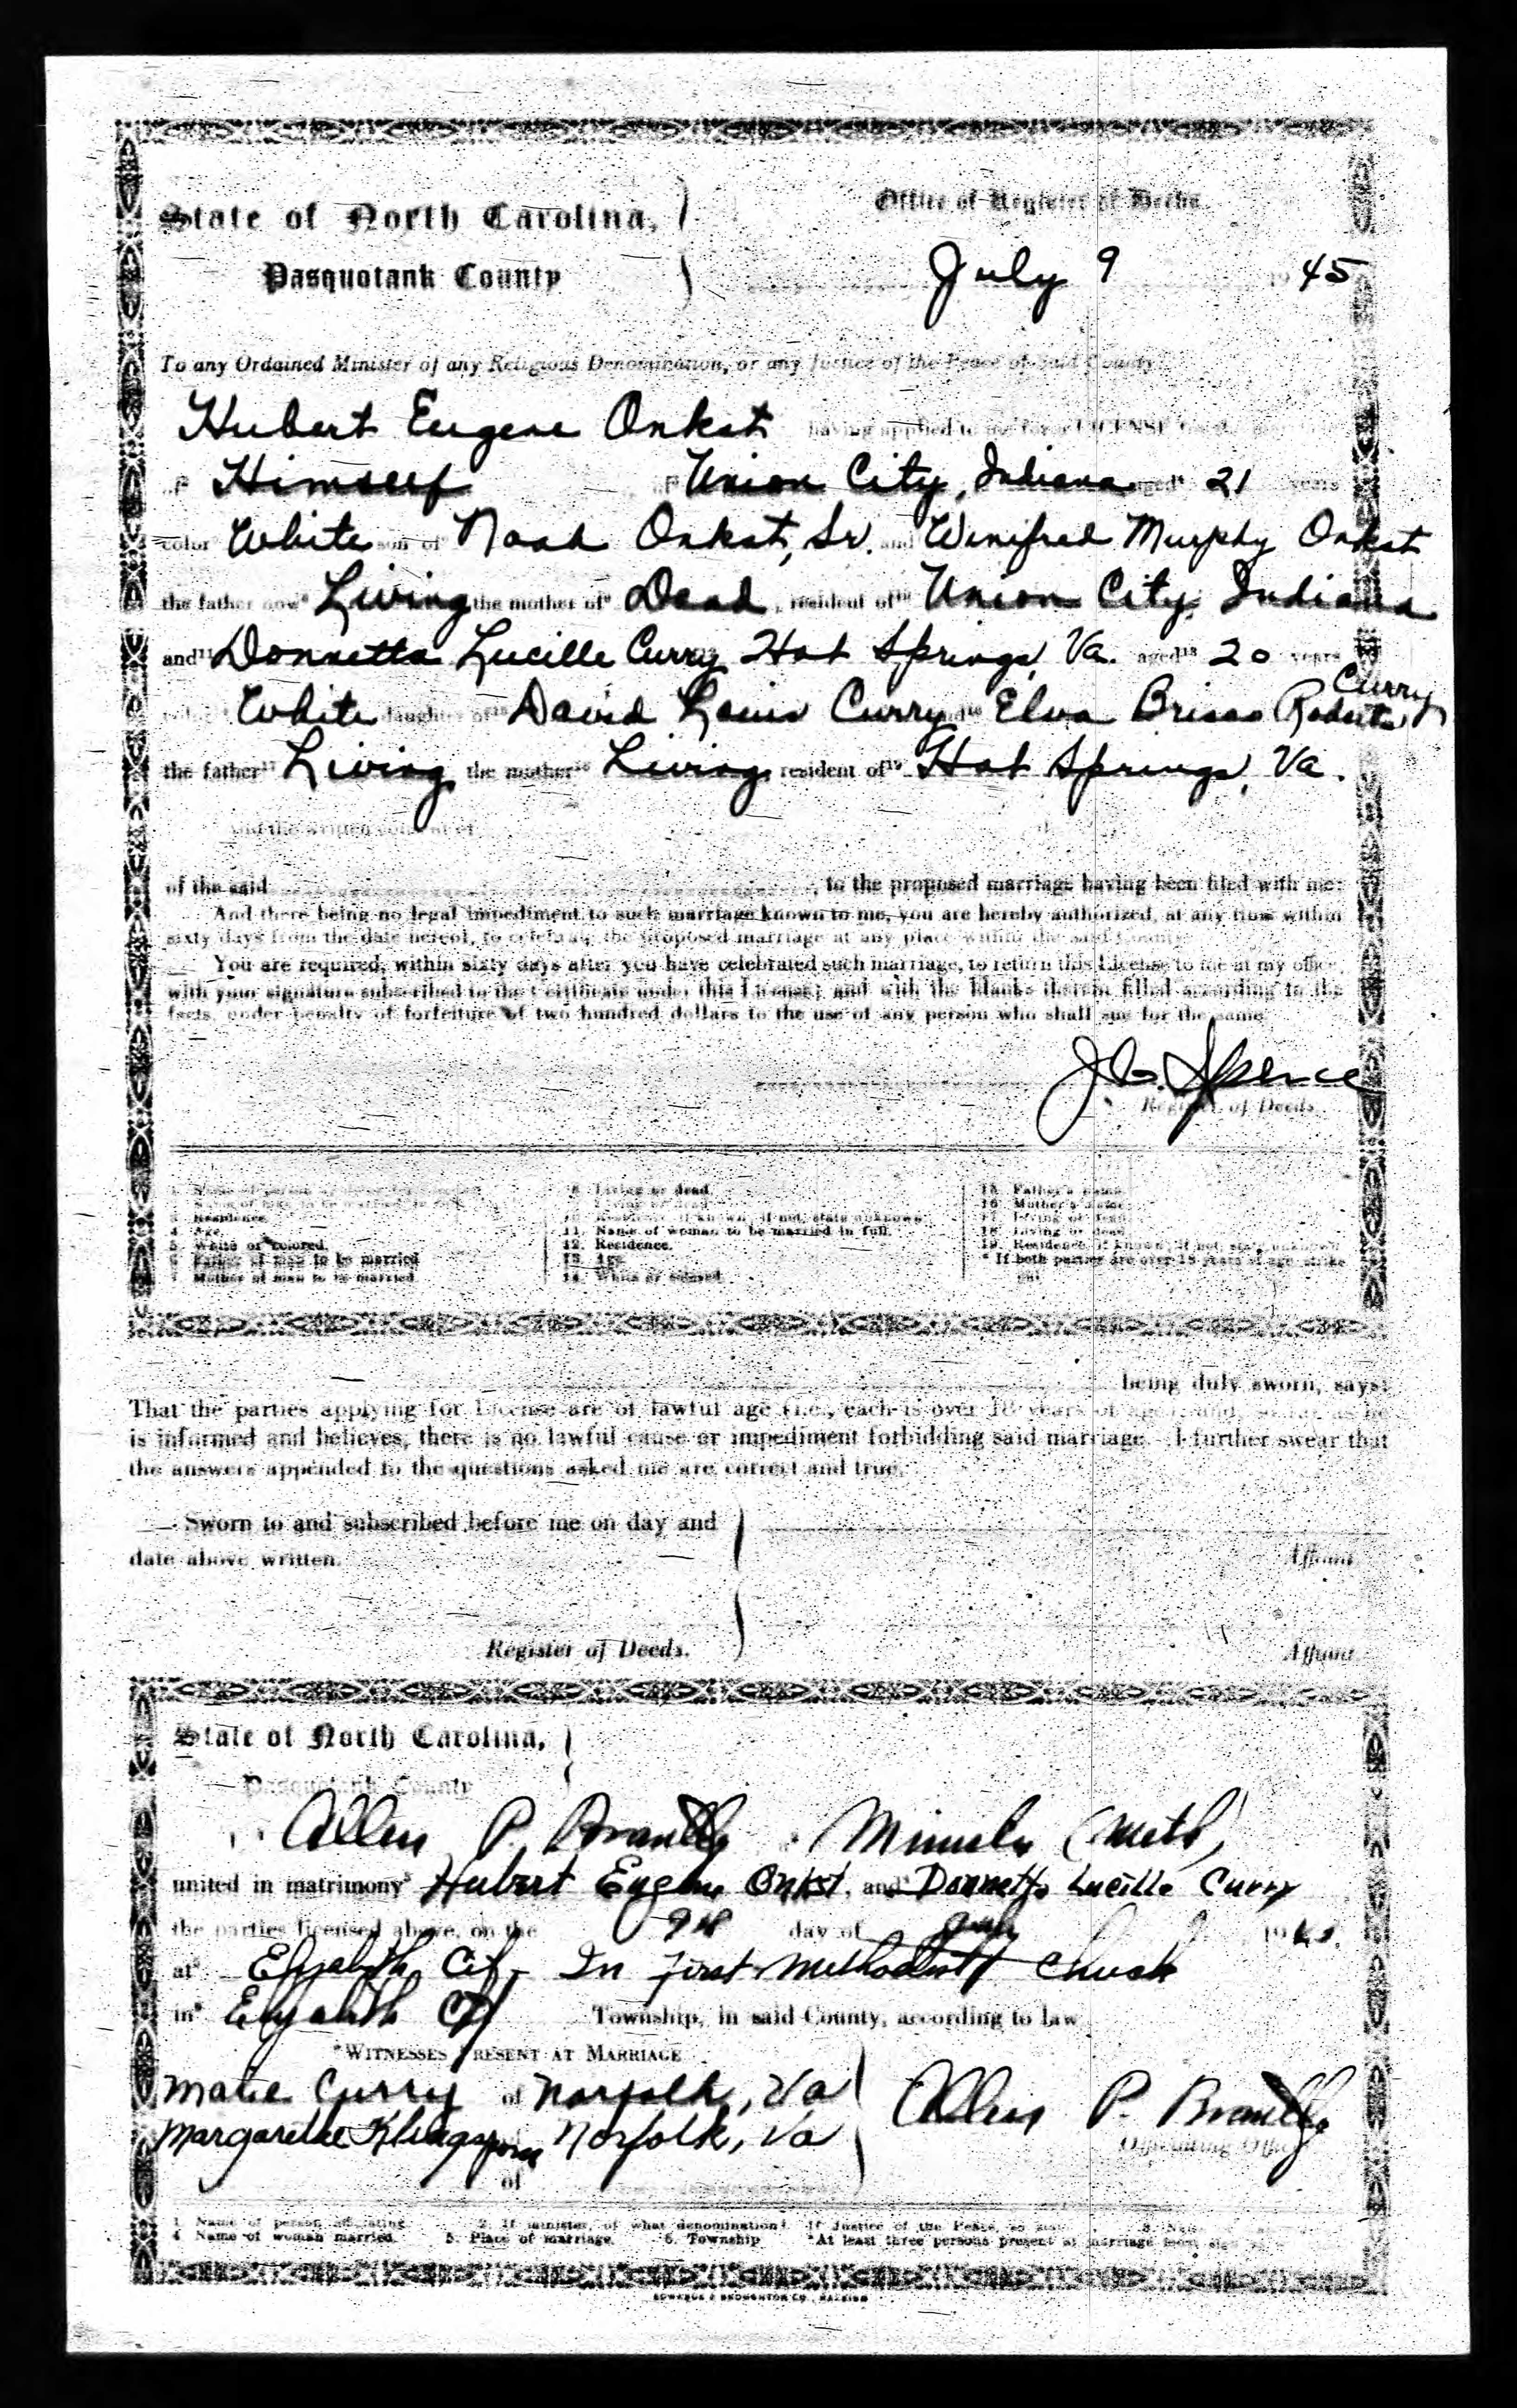 State of North Carolina,
Office of Register of Deeds
Pasquotank County
July 9 1945
To any Ordained Minister of any Religious Denomination, or any Justice of the Peace of Said County
Hubert Eugene Onkst having applied to me for a LICENSE for the
of Himself of Union City, Indiana aged 21 years
color White son of Noah Onkst, Sr. and Winifred Murphy Onkst
the father now Living the mother of Dead, resident of Union City, Indiana
and Donnetta Lucille Curry Hot Springs, Va. aged 20 years
White daughter of David Louis Curry and Elva Roberts Curry
the father Living the mother Living, resident of Hot Springs, Va.
and the written consent of
of the said , to the proposed marriage having been filed with me:
And there being no legal impediment to such marriage known to me, you are hereby authorized, at any time within
sixty days from the date hereof, to celebrate the proposed marriage at any place within the said County.
You are required, within sixty days after you have celebrated such marriage, to return this License to me at my office
with your signature subscribed to the Certificate under this License, and with the blanks therein filled according to the
facts, under penalty of forfeiture of two hundred dollars to the use of any person who shall sue for the same
Spence
Register of Deeds.
8. Living or dead.
15. Father's name
16. Mother's name
3. Residence
4. Age.
11. Name of woman to be married in full.
17. Living or dead
5. White or colored.
12. Residence.
18. Living or dead
6. Father of man to be married
13. Age
19. Residence, if known, if not, state unknown
7. Mother of man to be married.
14. White or colored
* If both parties are over 18 years of age strike
out
being duly sworn, says:
That the parties applying for License are of lawful age (i.e., each is over 18 years of age), and, so far as he
is informed and believes, there is no lawful cause or impediment forbidding said marriage. I further swear that
the answers appended to the questions asked me are correct and true.
Sworn to and subscribed before me on day and
date above written.
Affiant
Register of Deeds.
Affiant
State of North Carolina,
Pasquotank County
Allen P. Brantley Minister (Meth)
united in matrimony Hubert Eugene Onkst, and Donnetta Lucille Curry
the parties licensed above, on the 9th day of July 19
at Elizabeth City In First Methodist Church
in Elizabeth City Township, in said County, according to law
*WITNESSES PRESENT AT MARRIAGE
Marie Curry of Norfolk, Va
Allen P. Brantley
Margarethe Norfolk, Va
Officiating Officer
of
1. Name of person officiating 2. If minister, of what denomination? If Justice of the Peace, so state. 3. Name
4. Name of woman married. 5. Place of marriage. 6. Township *At least three persons present at marriage must sign
EDWARDS & BROUGHTON CO., RALEIGH